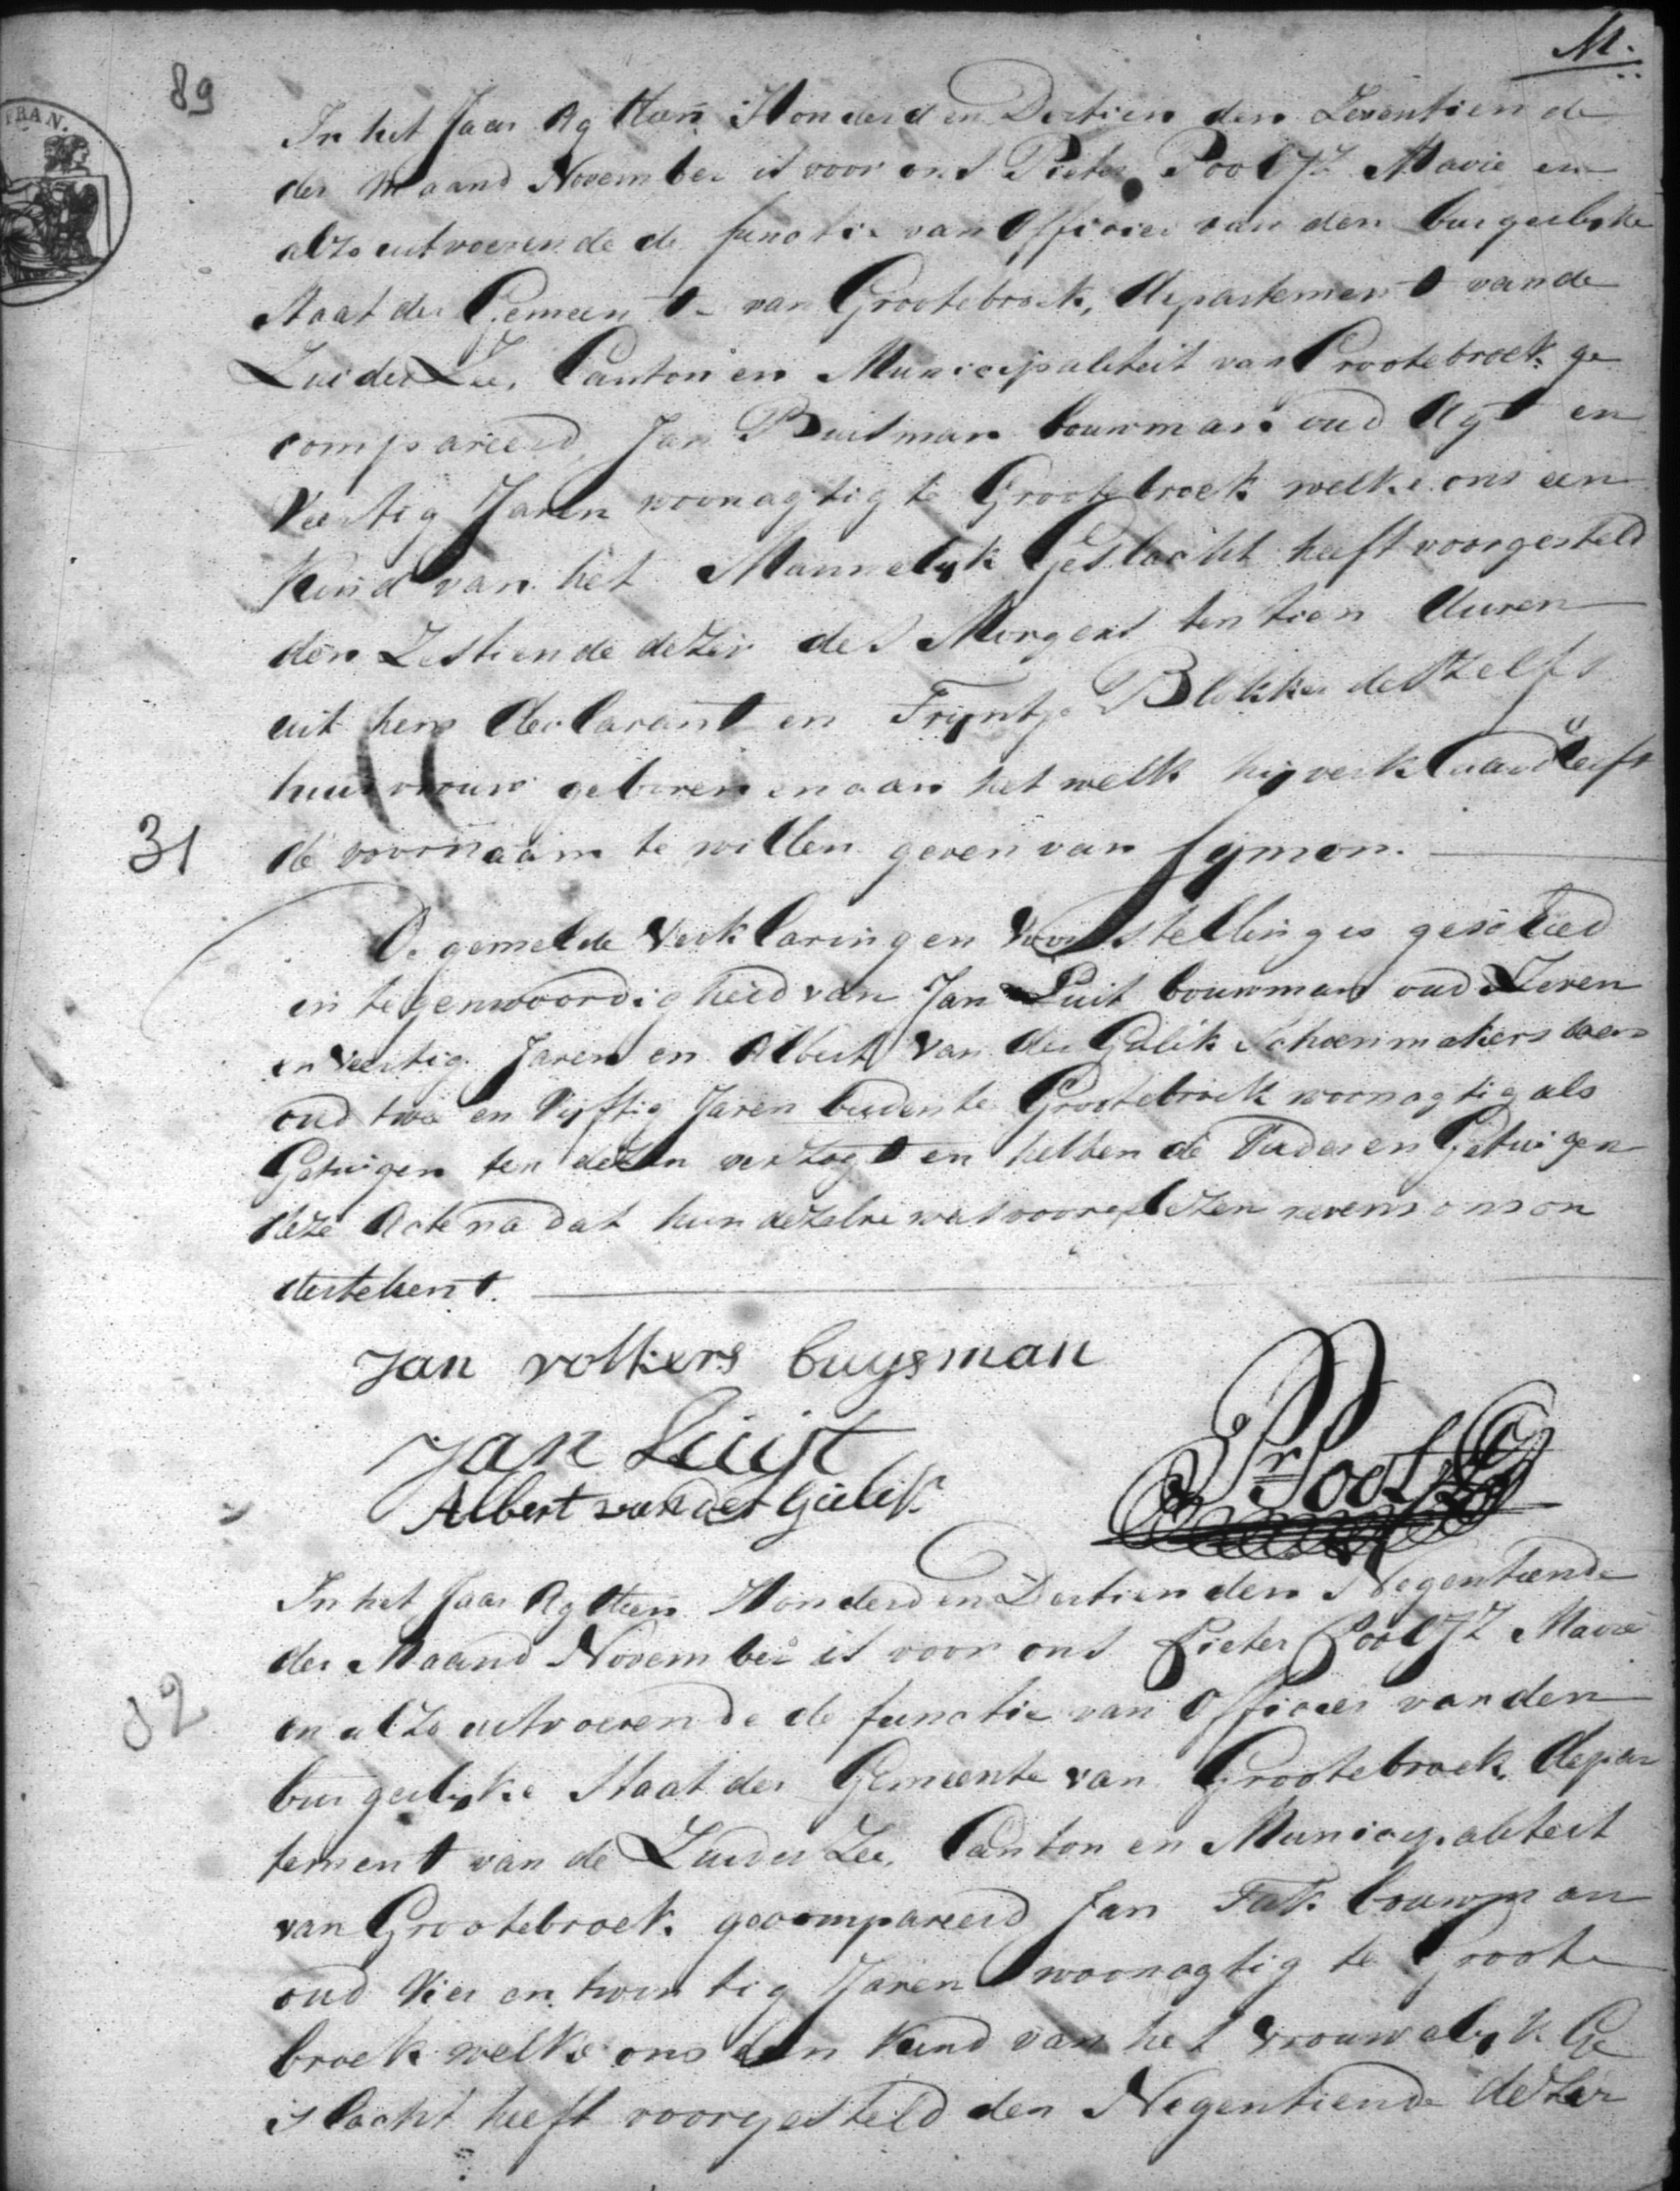 M.
89
FRAN.
In het Jaar Agttien Honderd en Dertien den Zeventiende
der Maand November is voor ons Pieter Pool JZ Mairie en
alzo uitvoerende de functie van Officier van den burgerlyke
Staat der Gemeente van Grootebroek, departement van de
Zuider Zee, Canton en Municipaliteit van Grootebroek ge
compareerd, Jan Buisman bouwman oud Agt en
Veertig Jaren woonagtig te Grootebroek welke ons een
Kind van het Mannelyk Geslacht heeft voorgesteld
den Zestiende dezer des Morgens ten tien Uuren
uit hem declarant en Tryntje Blokker deszelfs
huisvrouw geboren en aan het welk hy verklaard heeft
31
de voornaam te willen geven van Symon.
De gemelde Verklaring en Voorstelling is geschied
in tegenwoordigheid van Jan Luit bouwman oud Zeven
en Veertig Jaren en Albert Van der Gulik Schoenmakers baas
oud twe en Vyftig Jaren beiden te Grootebroek woonagtig als
Getuigen ten dezen verzogt en hebben de Vader en Getuigen
deze Acte na dat hun dezelve was voorgelezen nevens ons on
dertekent.
Jan volkers buysman
Jan Luijt
Albert van der Gulik
Pr Pool JZ
In het Jaar Agttien Honderd en Dertien den Negentiende
der Maand November is voor ons Pieter Pool JZ Mairie
32
en alzo uitvoerende de functie van Officier van den
burgerlyke Staat der Gemeente van Grootebroek, depar
tement van de Zuider Zee, Canton en Municipaliteit
van Grootebroek gecompareerd Jan bouwman
oud Vier en twintig Jaren woonagtig te Groote
broek welke ons een Kind van het Vrouwelyk Ge
slacht heeft voorgesteld den Negentiende dezer